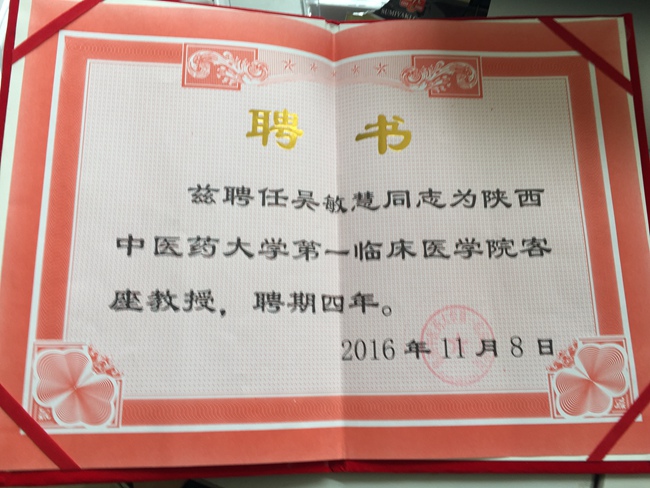 聘书
兹聘任吴敏慧同志为陕西
中医药大学第一临床医学院客
座教授，聘期四年。
2016年11月8日